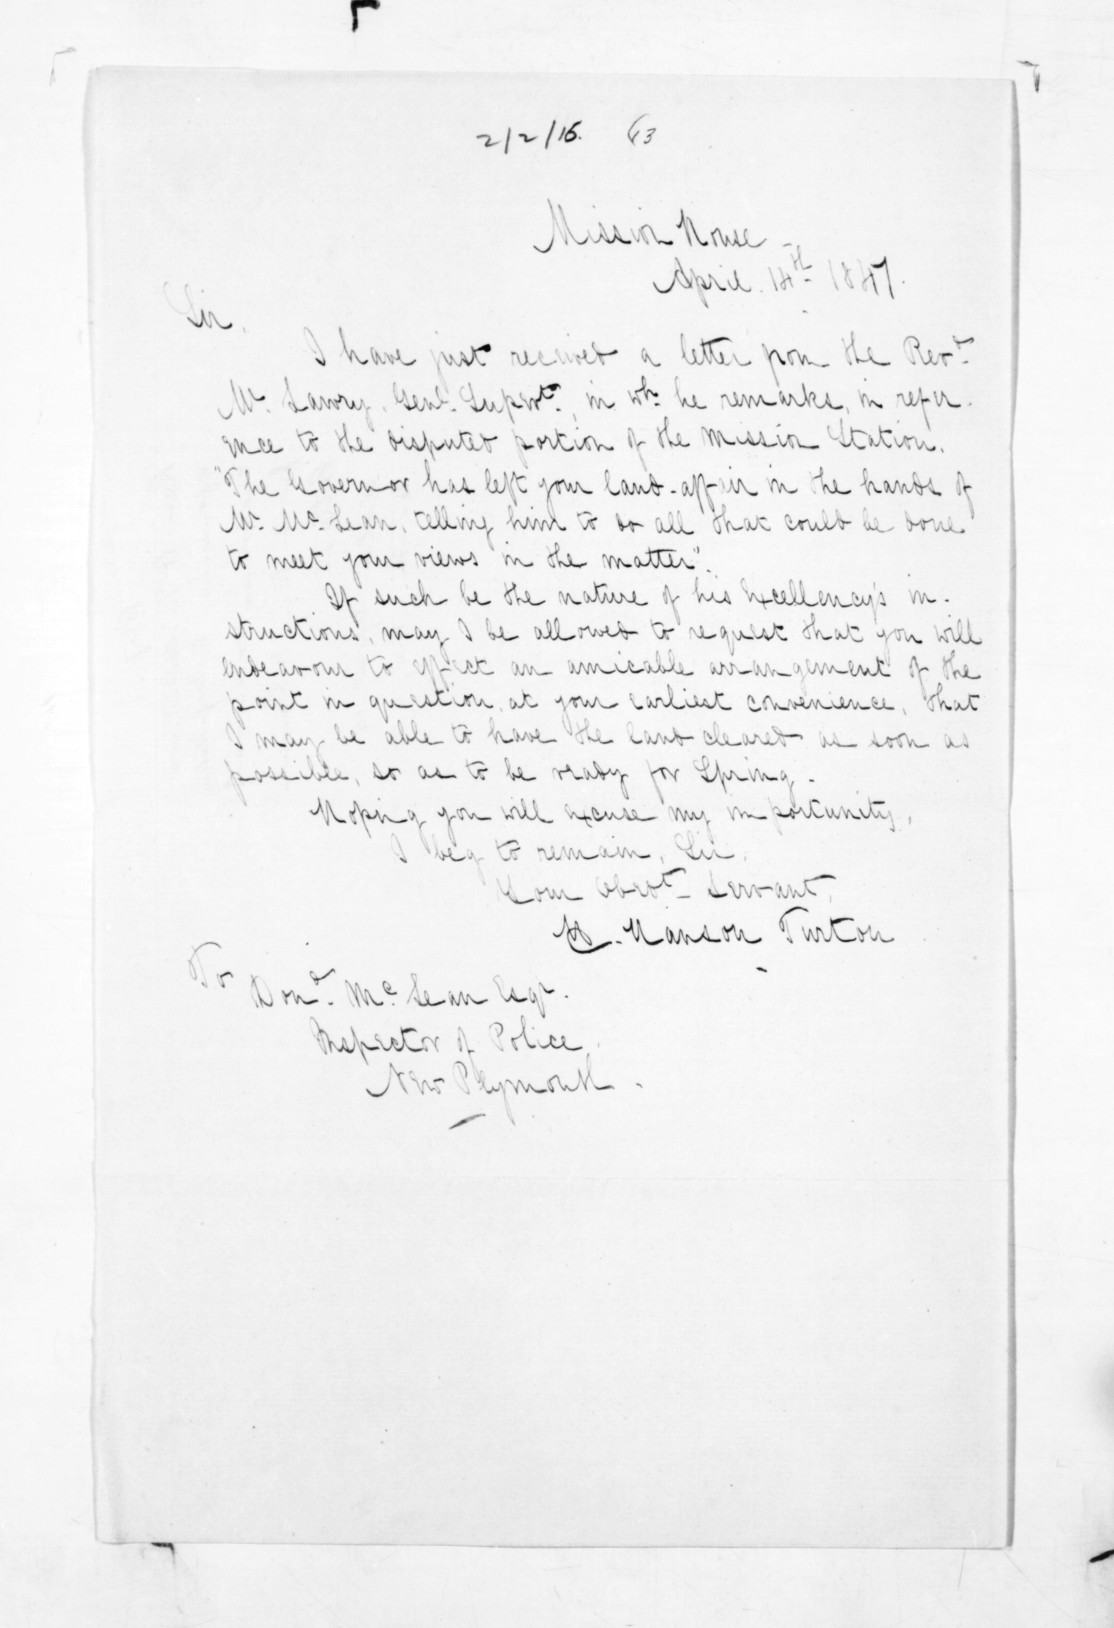 2/2/15. 63
Mission House
April. 14th 1847.
Sir,
I have just received a letter from the Revd.
Mr. Lawry, Genl. Supert., in wh. he remarks, in refer-
ence to the disputed portion of the Mission Station,
"The Governor has left your land-affair in the hands of
Mr. McLean, telling him to do all that could be done
to meet your views in the matter".
If such be the nature of his Excellency's in-
structions, may I be allowed to request that you will
endeavour to effect an amicable arrangement of the
point in question, at your earliest convenience, that
I may be able to have the land cleared as soon as
possible, so as to be ready for Spring.
Hoping you will excuse my importunity,
I beg to remain, Sir,
Your Obedt. Servant,
H. Hanson Turton
To
Dond. McLean Esqr.
Inspector of Police.
New Plymouth.